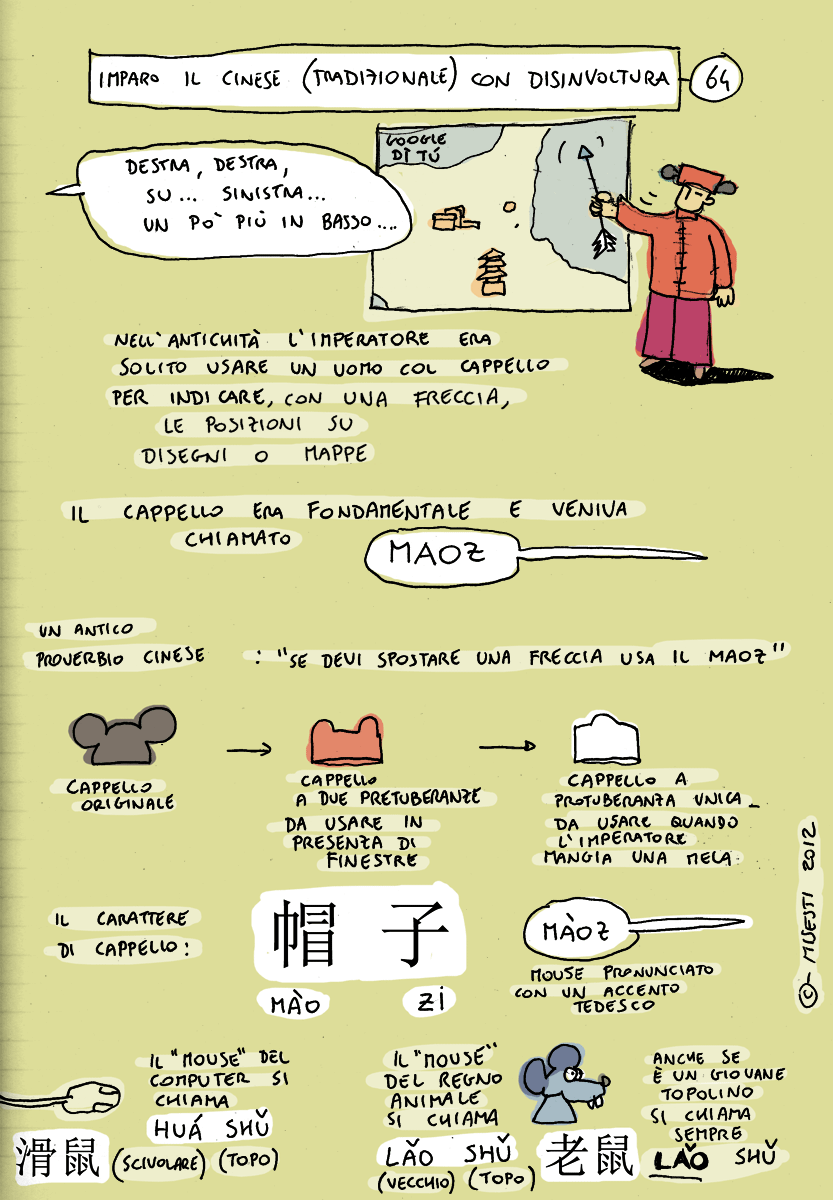 IMPARO IL CINESE (TRADIZIONALE) CON DISINVOLTURA 64
DESTRA, DESTRA,
SU... SINISTRA...
UN PO' PIÙ IN BASSO....
GOOGLE
DÌ TÚ
NELL'ANTICHITÀ L'IMPERATORE ERA
SOLITO USARE UN UOMO COL CAPPELLO
PER INDICARE, CON UNA FRECCIA,
LE POSIZIONI SU
DISEGNI O MAPPE
IL CAPPELLO ERA FONDAMENTALE E VENIVA
CHIAMATO
MAOZ
UN ANTICO
PROVERBIO CINESE : "SE DEVI SPOSTARE UNA FRECCIA USA IL MAOZ"
CAPPELLO
ORIGINALE
CAPPELLO
A DUE PRETUBERANZE
DA USARE IN
PRESENZA DI
FINESTRE
CAPPELLO A
PROTUBERANZA UNICA_
DA USARE QUANDO
L'IMPERATORE
MANGIA UNA MELA.
IL CARATTERE
DI CAPPELLO:
帽 子
MÀO ZI
MÀOZ
MOUSE PRONUNCIATO
CON UN ACCENTO
TEDESCO
© MUESTI 2012
IL "MOUSE" DEL
COMPUTER SI
CHIAMA
HUÁ SHǓ
滑鼠 (SCIVOLARE) (TOPO)
IL "MOUSE"
DEL REGNO
ANIMALE
SI CHIAMA
LǍO SHǓ
(VECCHIO) (TOPO)
老鼠
ANCHE SE
È UN GIOVANE
TOPOLINO
SI CHIAMA
SEMPRE
LǍO SHǓ